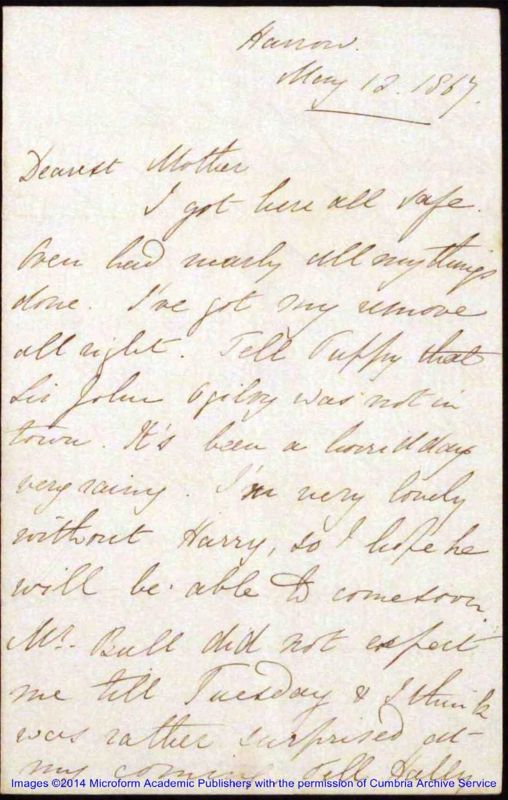 Harrow.
May 12. 1867.
Dearest Mother
I got here all safe.
Owen had nearly all my things
done. I've got my remove
all right. Tell Puffy that
Sir John Ogilvy was not in
town. It's been a horrid day
very rainy. I'm very lonely
without Harry, so I hope he
will be able to come soon.
Mr. Bull did not expect
me till Tuesday & I think
was rather surprised at
my coming. Tell
Images ©2014 Microform Academic Publishers with the permission of Cumbria Archive Service